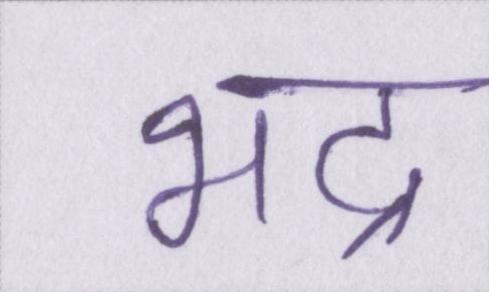 भद्र